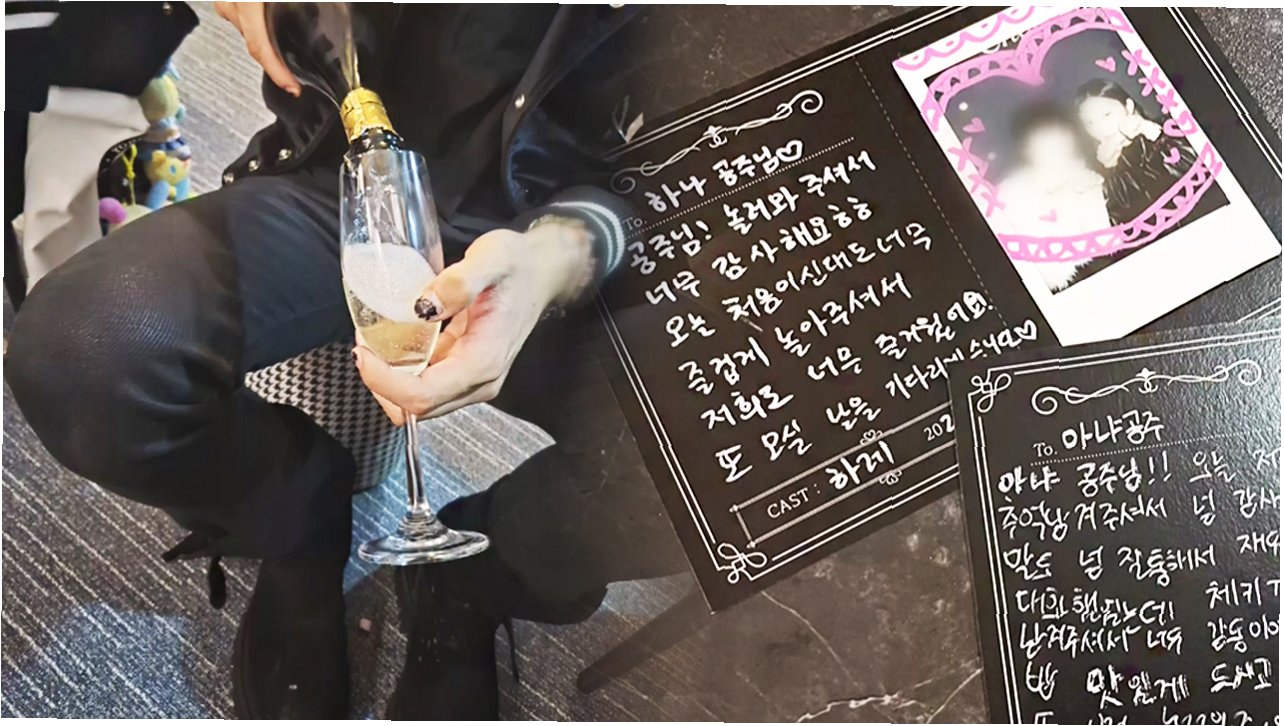 To. 하나 공주님♡
공주님! 놀러와 주셔서
너무 감사해요 ㅎㅎ
오늘 처음이신대도 너무
즐겁게 놀아주셔서
저희도 너무 즐거웠어요!
또 오실 날을 기다리께요♡
CAST : 하레
202
To. 아냐공주
아냐 공주님!! 오늘
추억남겨주셔서 넘 감사
말도 넘 잘통해서 재
체키
남겨주셔서 너무 감동이
밥 맛있게 드시고
또